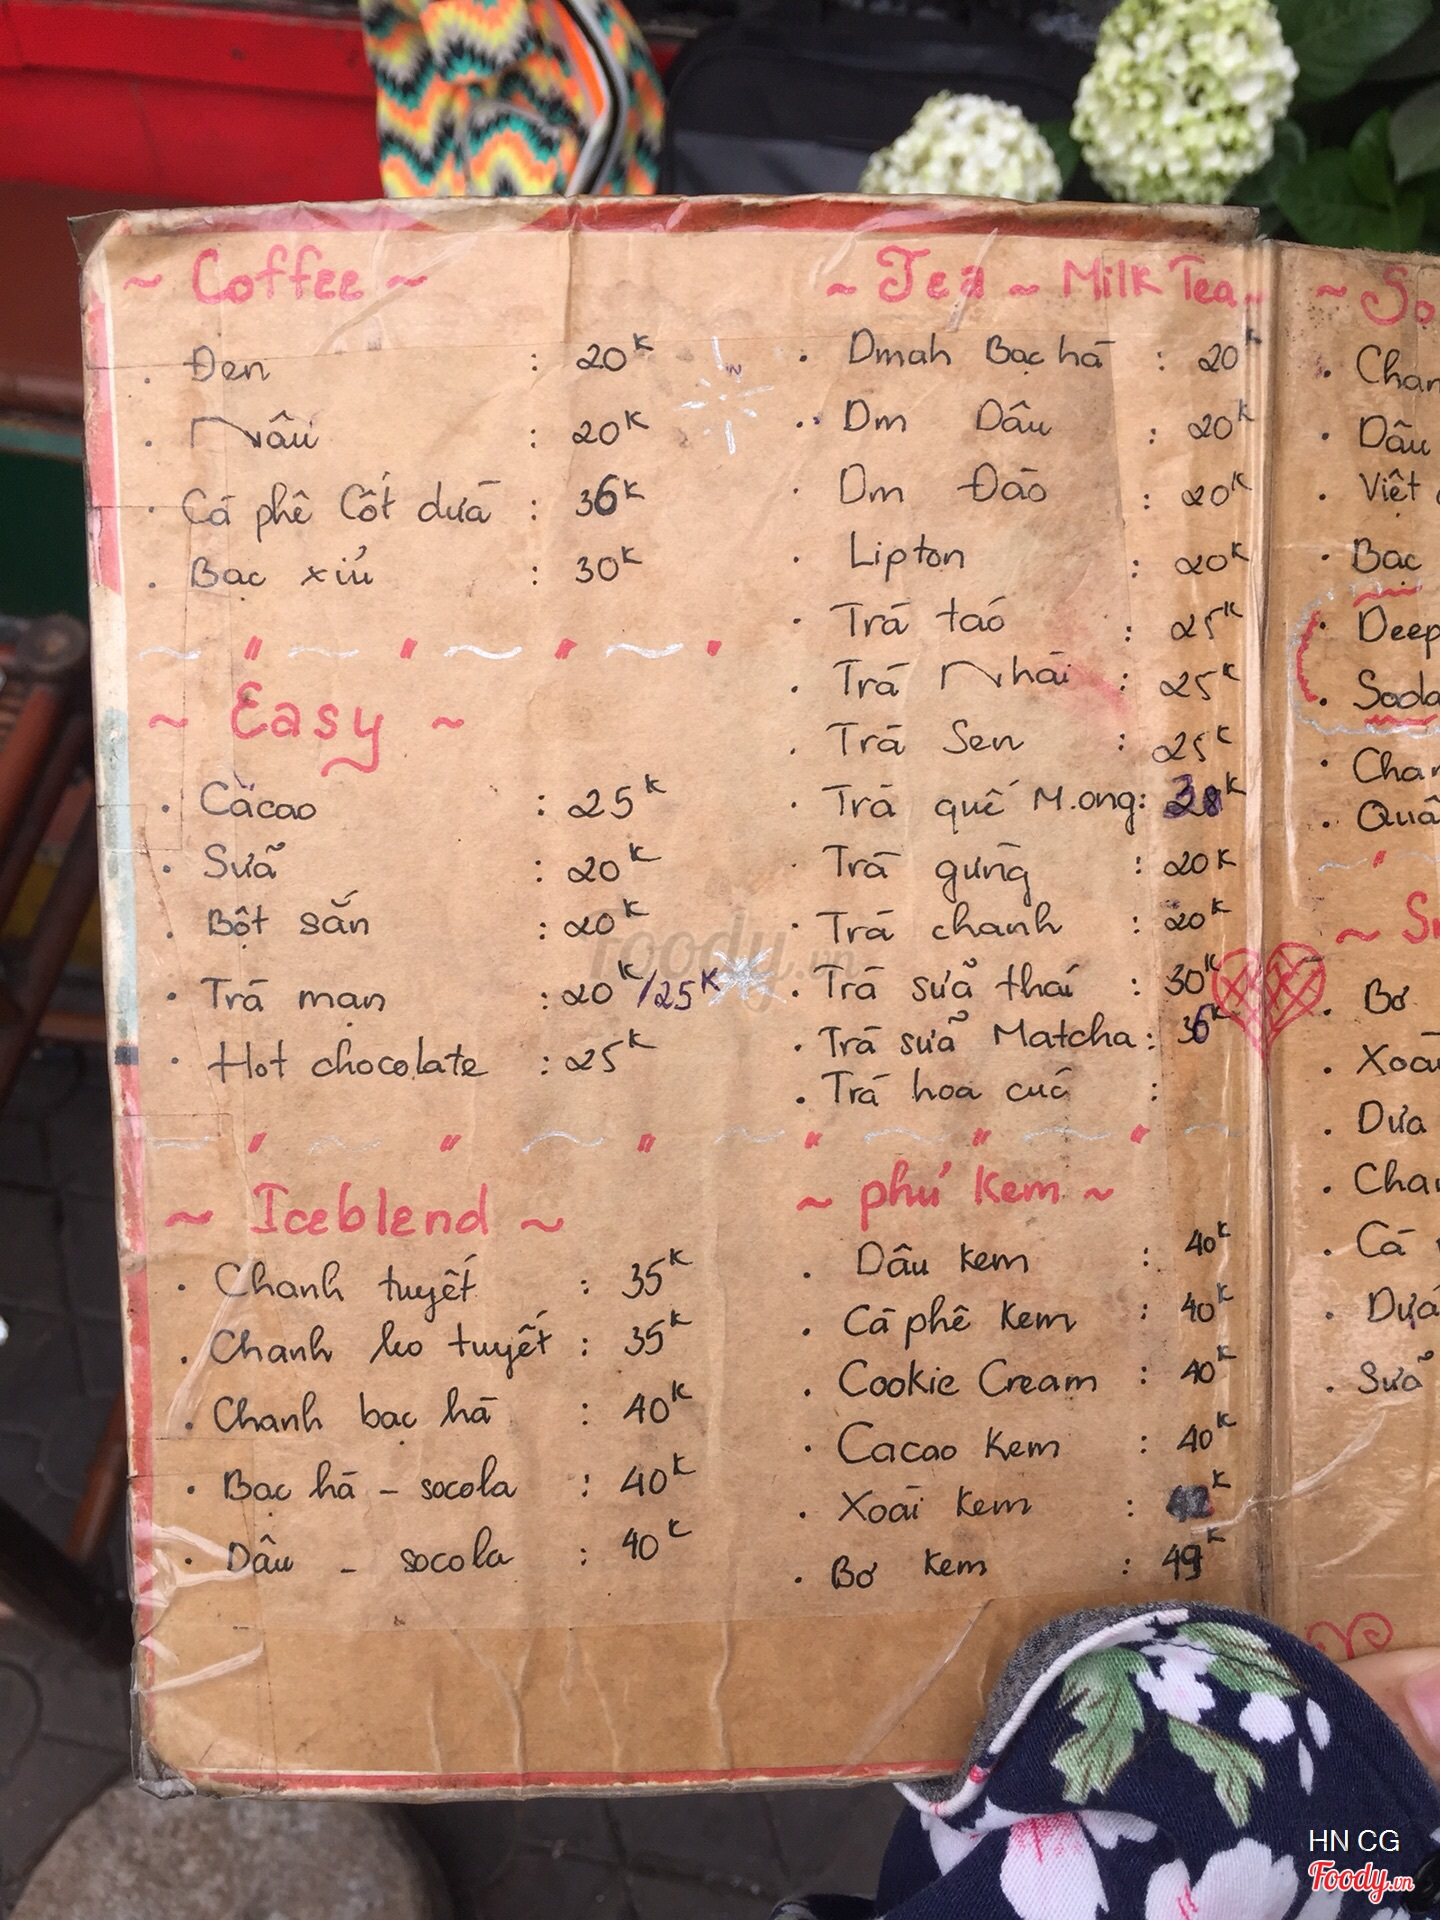 ~ Coffee ~
. Đen : 20K
. Nâu : 20K
. Cà phê Cốt dừa : 36K
. Bạc xỉu : 30K
~ Easy ~
. Cacao : 25K
. Sữa : 20K
. Bột sắn : 20K
. Trà mạn : 20K/25K
. Hot chocolate : 25K
~ Iceblend ~
. Chanh tuyết : 35K
. Chanh leo tuyết : 35K
. Chanh bạc hà : 40K
. Bạc hà - socola : 40K
. Dâu - socola : 40K
~ Tea ~ Milk Tea ~
. Dmah Bạc hà : 20K
. Dm Dâu : 20K
. Dm Đào : 20K
. Lipton : 20K
. Trà táo : 25K
. Trà Nhài : 25K
. Trà Sen : 25K
. Trà quế M.ong : K
. Trà gừng : 20K
. Trà chanh : 20K
. Trà sữa thái : 30K
. Trà sữa Matcha : 36K
. Trà hoa cúc :
~ phủ kem ~
. Dâu kem : 40K
. Cà phê kem : 40K
. Cookie Cream : 40K
. Cacao kem : 40K
. Xoài kem : K
. Bơ kem : 49K
. Dâu
. Việt
. Bạc
. Deep
. Soda
. Bơ
. Xoài
. Dưa
. Cà
. Dừa
. Sữa
Foody.vn
HN CG
Foody.vn